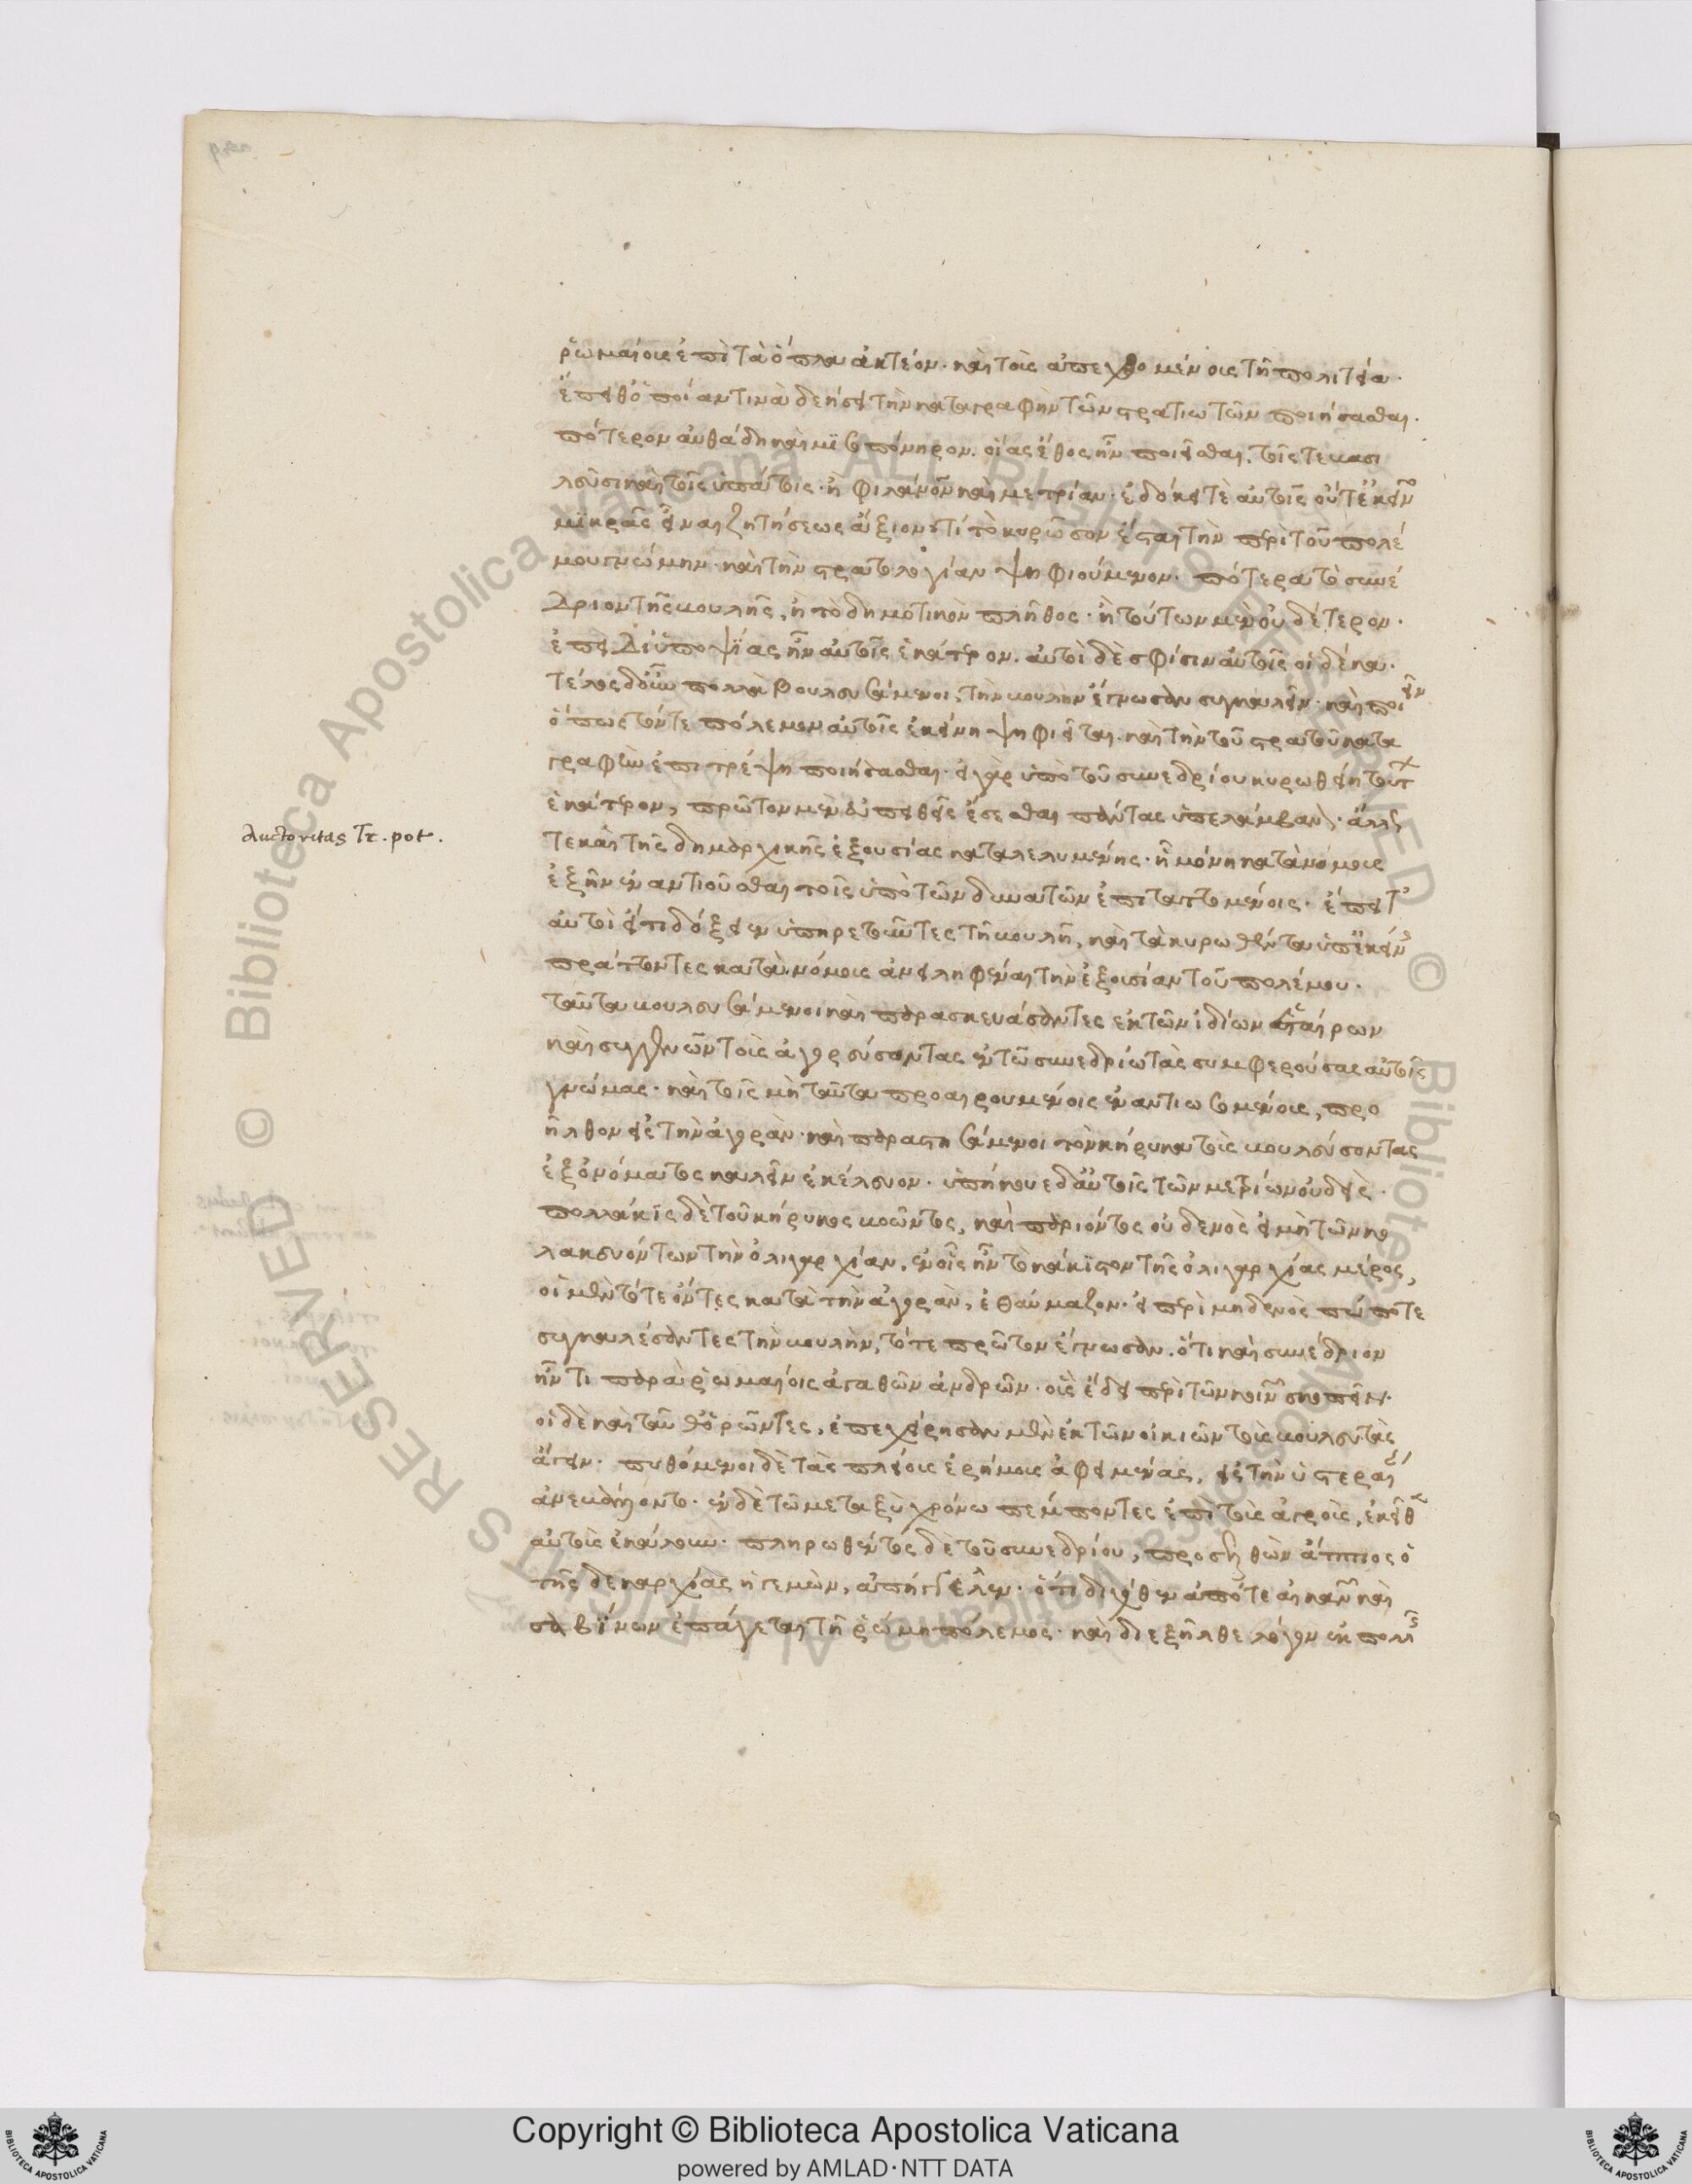 ῥωμαίοις ἐπὶ τὰ ὅπλα ἀκτέον· καὶ τοῖς ἀπεχθομένοις τῇ πολιτεία·
ἔπειθ' ὁποίαν τινὰ δεήσει τὴν καταγραφὴν τῶν στρατιωτῶν ποιήσασθαι·
πότερον αὐθάδη καὶ μισοπόνηρον. οἵας ἔθος ἦν ποιεῖσθαι τοῖς τε βασι
λεῦσι καὶ τοῖς ὑπάτοις· ἢ φιλάνθρωπον καὶ μετρίαν· ἐδόκει τὲ αὐτοῖς οὐ τἐκεῖνο
μικρᾶς εἶναι ζητήσεως ἄξιον· τί τὸ κυρῶσον ἔσται τὴν περὶ τοῦ πολέ
μου γνώμην· καὶ τὴν στρατολογίαν ψηφιούμενον· πότερα τὸ συνέ
δριον τῆς βουλῆς, ἢ τὸ δημοτικὸν πλῆθος· ἢ τούτων μὲν οὐδέτερον·
ἐπεὶ δι' ὑποψίας ἦν αὐτοῖς ἑκάτερον. αὐτοὶ δὲ σφίσιν αὐτοῖς οἱ δέκα·
τέλος δ' οὖν πολλὰ βουλευσάμενοι, τὴν βουλὴν ἔγνωσαν συγκαλεῖν· καὶ ποιεῖν
ὅπως τόν τε πόλεμον αὐτοῖς ἐκείνη ψηφιεῖται. καὶ τὴν τοῦ στρατοῦ κατα
γραφὴν ἐπιτρέψη ποιήσασθαι· εἰ γὰρ ὑπὸ τοῦ συνεδρίου κυρωθείη τούτων
ἑκάτερον, πρῶτον μὲν εὐπειθεῖς ἔσεσθαι πάντας ὑπελάμβανον· ἄλλως
τε καὶ τῆς δημαρχικῆς ἐξουσίας καταλελυμένης· ἧ μόνη κατὰ νόμους
ἐξῆν ἐναντιοῦσθαι τοῖς ὑπὸ τῶν δυνατῶν ἐπιταττομένοις· ἔπειτ'
αὐτοὶ ἔτι δόξειεν ὑπηρετοῦντες τῇ βουλῇ, καὶ τὰ κυρωθέντα ὑπ' ἐκείνης
πράττοντες κατὰ νόμους ἀνειληφέναι τὴν ἐξουσίαν τοῦ πολέμου·
ταῦτα βουλευσάμενοι καὶ παρασκευάσαντες ἐκ τῶν ἰδίων ἑταίρων
καὶ συγγενῶν τοὺς ἀγορεύσοντας ἐν τῷ συνεδρίω τὰς συμφερούσας αὐτοῖς
γνώμας· καὶ τοῖς μὴ ταῦτα προαιρουμένοις ἐναντιωσομένους, προ
ῆλθον εἰς τὴν ἀγορὰν· καὶ παραστησάμενοι τὸν κήρυκα τοὺς βουλεύσοντας
ἐξ ὀνόματος καλεῖν ἐκέλευον· ὑπήκουε δ' αὐτοῖς τῶν μετρίων οὐδεὶς·
πολλάκις δὲ τοῦ κήρυκος βοῶντος, καὶ παριόντος οὐδενὸς εἰ μὴ τῶν κο
λακευόντων τὴν ὀλιγαρχίαν, ἐν οἷς ἦν τὸ κάκιστον τῆς ὀλιγαρχίας μέρος,
οἱ μὲν τότε ὄντες κατὰ τὴν ἀγορὰν, ἐθαύμαζον· εἰ περὶ μηδενὸς πώποτε
συγκαλέσαντες τὴν βουλὴν, τότε πρῶτον ἔγνωσαν. ὅτι καὶ συνέδριον
ἦν τι παρὰ ῥωμαίοις ἀγαθῶν ἀνδρῶν· οὓς ἔδει περὶ τῶν κοινῶν σκοπεῖν·
οἱ δὲ καὶ ταῦθ' ὁρῶντες, ἐπεχείρησαν μὲν ἐκ τῶν οἰκιῶν τοὺς βουλευτὰς
ἄγειν· πυθόμενοι δὲ τὰς πλείους ἐρήμους ἀφειμένας, εἰς τὴν ὑστεραίαν
ἀνεβάλλοντο· ἐν δὲ τῷ μεταξὺ χρόνω πέμποντες ἐπὶ τοὺς ἀγροὺς, ἐκεῖθεν
αὐτοὺς ἐκάλουν· πληρωθέντος δὲ τοῦ συνεδρίου, προσελθὼν ἄππιος ὁ
τῆς δεκαρχίας ἡγεμὼν, ἀπήγγειλεν· ὅτι διχόθεν ἀπό τε αἰκανῶν καὶ
σαβίνων ἐπάγεται τῇ ῥώμη πόλεμος· καὶ διεξῆλθε λόγον ἐκ πολλῆς
Auctoritas Tr. pot.
Copyright © Biblioteca Apostolica Vaticana
powered by AMLAD·NTT DATA